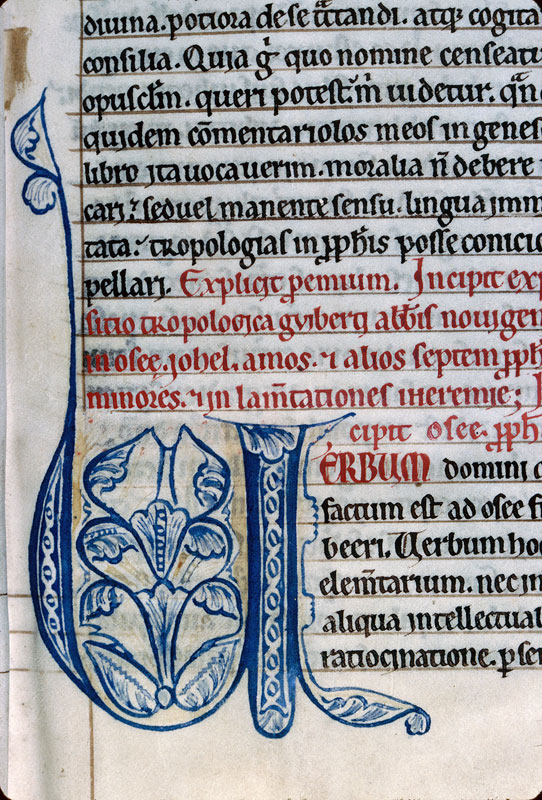 diuina. potiora de se t̃tandi. atq; cogita
consilia. Quia g̊ quo nomine censeatu
opusclm̃. queri potest. m̃ uidetur. qãn
quidem cõmentariolos meos in genes
libro ita uocauerim. moralia ñ debere
cari؛ sed uel manente sensu. lingua imm
tata؛ tropologias in ꝓphis posse conicio
pellari. Explicit ꝓemium. Incipit exp
sitio tropologica guiberti abbis nouigen
in osee. johel. amos. ⁊ alios septem ꝓph
minores. ⁊ in lam̃tationes iheremie;
cipit osee. ꝓph
UERBUM domini q
factum est ad osee fi
beeri. Uerbum hoc
elem̃tarium. nec in
aliqua intellectual
ratiocinatione. ꝑ sen